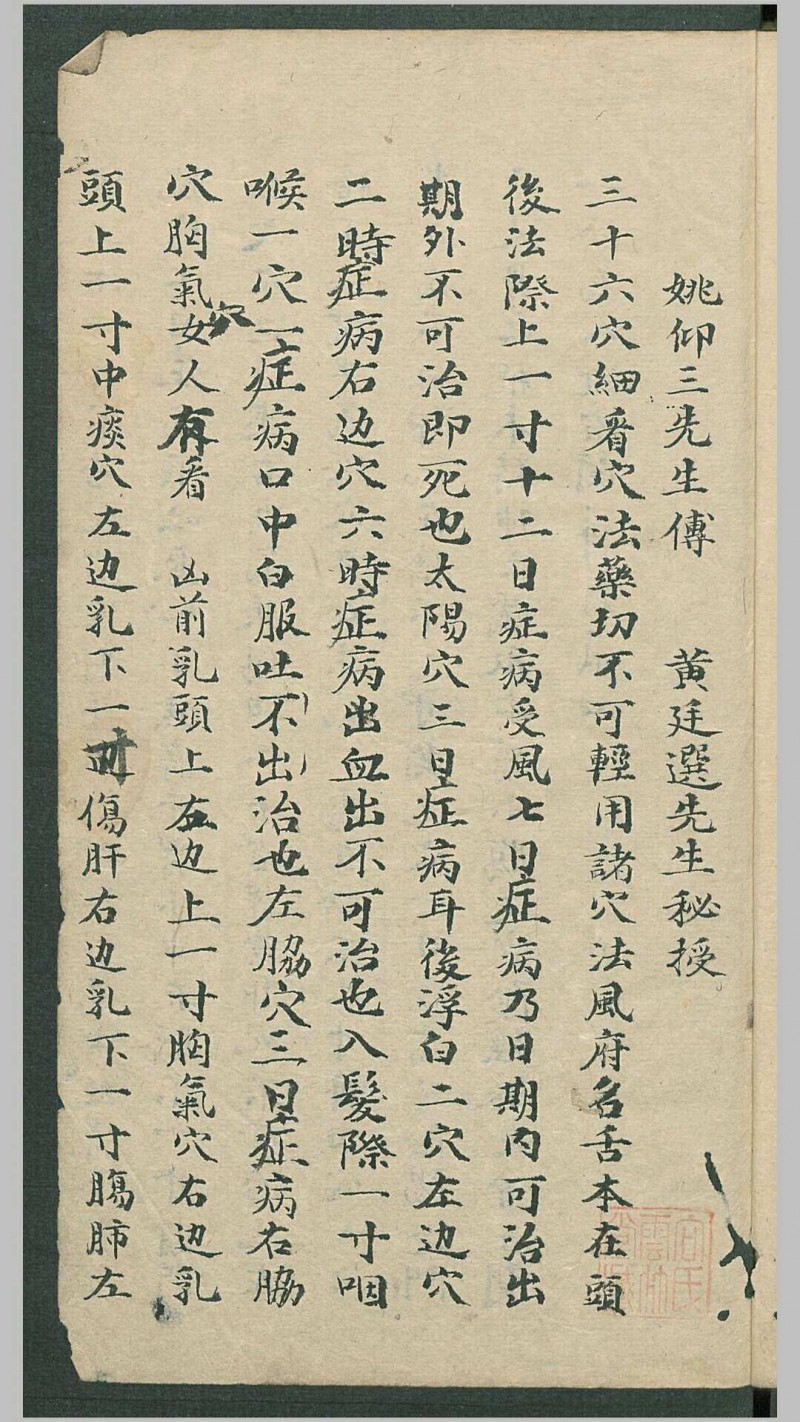 姚仰三先生傅　黄廷選先生秘授
三十六穴細看穴法藥切不可輕用諸穴法風府名舌本在頭
後法際上一寸十二日症病受風七日症病乃日期内可治出
期外不可治即死也太陽穴三日症病耳後浮白二穴左边穴
二時症病右边穴六時症病出血出不可治也入髮際一寸咽
喉一穴一症病口中白服吐不出治也左脇穴三日症病右脇
穴胸氣穴女人有看　凶前乳頭上右边上一寸胸氣穴右边乳
頭上一寸中痰穴左边乳下一寸傷肝右边乳下一寸傷肺左